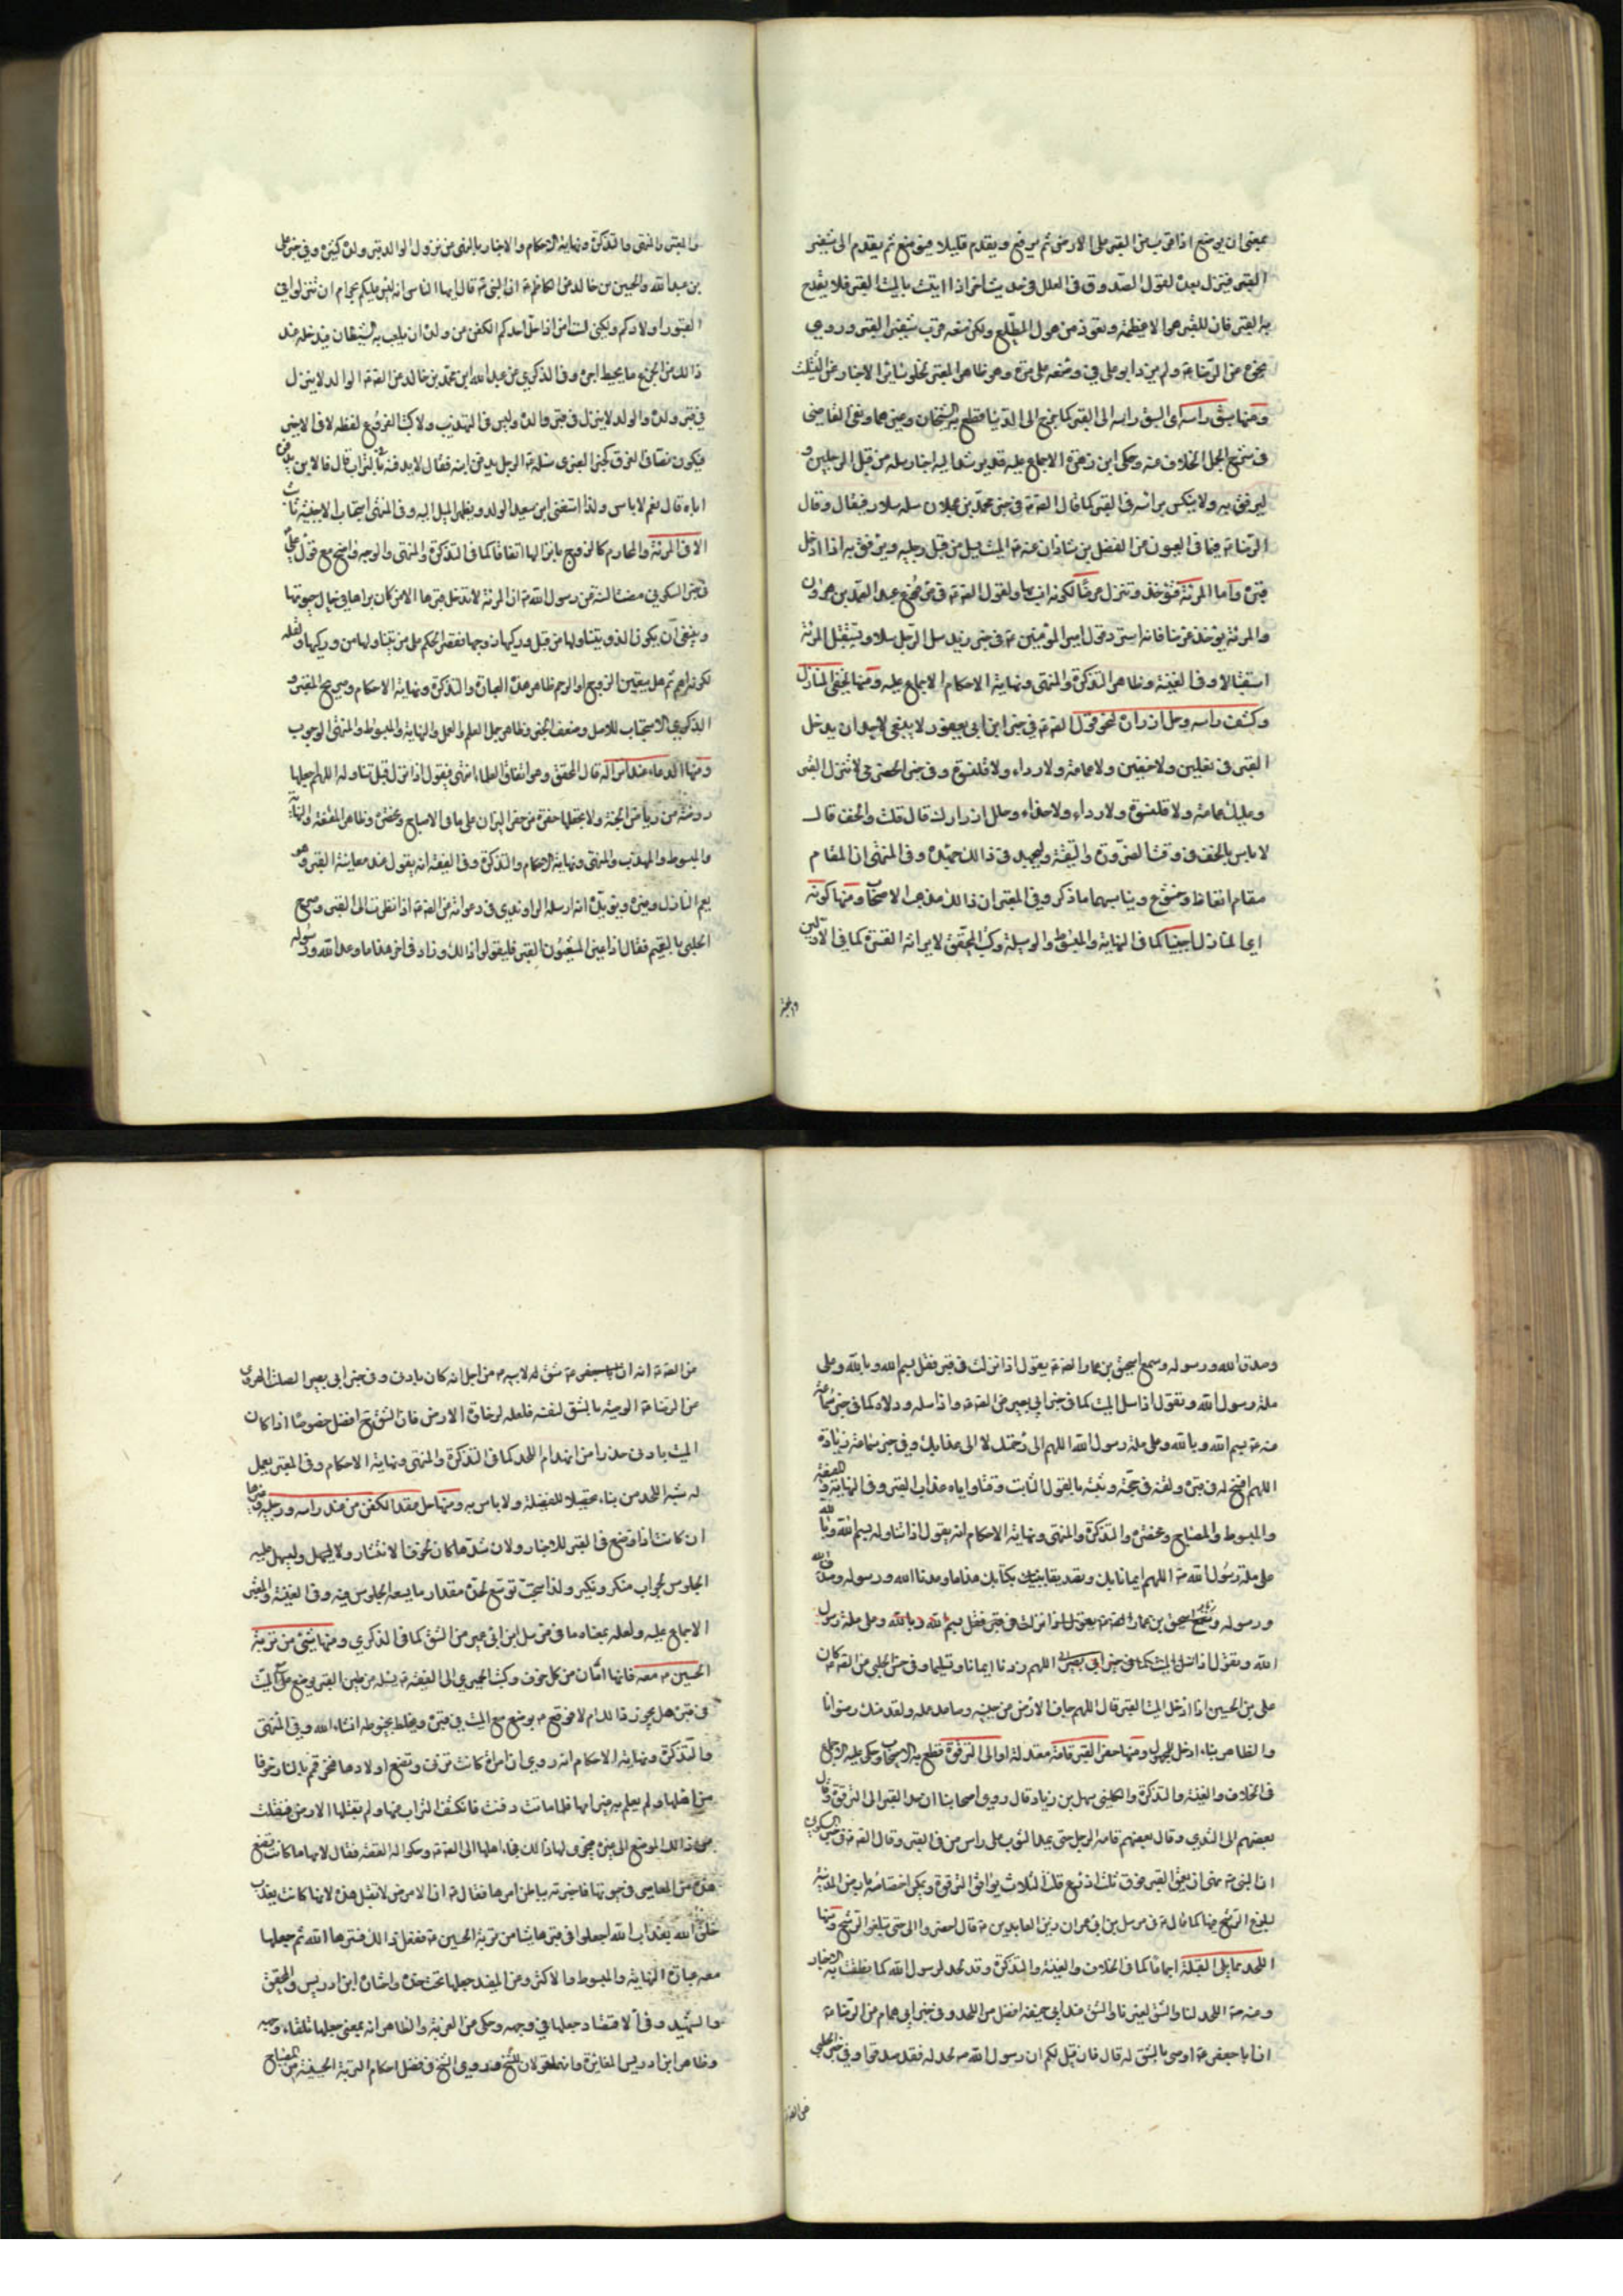 بمعنى ان يوضع اذا قرب من القبر على الارض ثم يرفع ويقدم قليلا فيوضع ثم يقدم الى شفير
القبر فينزل بعده لقول الصدوق في العلل في حديث اخر اذا اتيت بالميت القبر فلا تفدح
به القبر فان للقبر اهوالا عظيمة وتعوذ من هول المطلع ولكن ضعه قرب شفير القبر وروى
نحوه عن الرضا ولم يزد ابو علي في وضعه على مرة وهو ظاهر المعتبر لخلو سائر الاخبار عن الثلث
ومنها سبق راسه اى السبق راسه الى القبر كما يخرج الى الدنيا فقطع به الشيخان وغيرهما ونفى القاضى
في شرح الجمل الخلاف عنه وحكى ابن زهرة الاجماع عليه قد يرشد اليه اخبار سله من قبل الرجلين و
ليرفق به ولا ينكس براسه في القبر كما قال الصادق في خبر محمد بن عجلان سله سلا رفيقا وقال
الرضا فيما في العيون عن الفضل بن شاذان عنه الميت يسل من قبل رجليه ويرفق به اذا ادخل
قبره واما المرئة فتوخذ وتنزل عرضا لكونه استر ولقول الصادق في مرفوع عبد الصمد بن هرون
والمرئة توخذ عرضا فانه استر وقول امير المؤمنين في خبر زيد يسل الرجل سلا ويستقبل المرئة
استقبالا وفي الغنية وظاهر التذكرة والمنتهى ونهاية الاحكام الاجماع عليه ومنها تحفى النازل
وكشف راسه وحل ازراره لنحو قول الصادق في خبر ابن ابى يعفور لا ينبغى لاحد ان يدخل
القبر في نعلين ولا خفين ولا عمامة ولا رداء ولا قلنسوة وفي خبر الحضرمي لا تنزل القبر
وعليك عمامة ولا قلنسوة ولا رداء ولا حذاء وحلل ازرارك قال قلت والخف قال
لا باس بالخف في وقت الضرورة والتقية وليجهد في ذلك جهده وفي المنتهى ان المقام
مقام اتعاظ وخشوع ويناسبهما ما ذكر وفي المعتبر ان ذلك مذهب الاصحاب ومنها كونه
اى النازل اجنبيا كما في النهاية والمبسوط والوسيلة وكتب المحقق لايراثه القسوة كما في الاولين
والمعتبر والمنتهى والتذكرة ونهاية الاحكام والاخبار بالنهى عن نزول الوالد قبر ولده كثيرة وفي خبر على
بن عبد الله والحسين بن خالد عن الكاظم ان النبي قال ايها الناس انه ليس عليكم بحرام ان تنزلوا في
القبور اولادكم ولكنى لست امن اذا حل احدكم الكفن عن ولده ان يلعب به الشيطان فيدخله عند
ذلك من الجزع ما يحبط اجره وفي الذكرى عن عبد الله بن محمد بن خالد عن الصادق الوالد لا ينزل
في قبر ولده والولد لا ينزل في قبر والده وليس في التهذيب ولا كتب الفروع لفظه لا في الاخير
فيكون نصا في الفرق كخبر العنبرى سئله الرجل يدفن ابنه فقال لا يدفنه في التراب قال فالابن يدفن
اباه قال نعم لا باس ولذا استثنى ابن سعيد الولد ويظهر الميل اليه وفي المنتهى استحباب الاجنبية
الا في المرئة والمحارم كالزوج بانزالها اتفاقا كما في التذكرة والمنتهى والوجه واضح مع قول على
في خبر السكونى مضت السنة من رسول الله ان المرئة لا يدخل قبرها الا من كان يراها في حال حيوتها
وينبغى ان يكون الذى يتناولها من قبل وركيها زوجها لقصر الحكم على من يتناولها من وركيها ولعله
لكونه اهم ثم هل يتعين الزوج او الرحم ظاهر هذه العبارة والتذكرة ونهاية الاحكام وصريح المعتبر و
الذكرى الاستحباب للاصل وضعف الخبر وظاهر جمل العلم والعمل والنهاية والمبسوط والمنتهى الوجوب
ومنها الدعاء عند انزاله قال المحقق وهو اتفاق العلماء انتهى فيقول اذا نزل قبل تناوله اللهم اجعلها
روضة من رياض الجنة ولا تجعلها حفرة من حفر النيران على ما في الاصباح ومختصره وظاهر المقنعة والنهاية
والمبسوط والمهذب والمنتهى ونهاية الاحكام والتذكرة وفي الفقيه انه يقول عند معاينة القبر وهو
يعم النازل وغيره ويؤيده انه ارسله الراوندى في دعواته عن الصادق اذا نظرت الى القبر وصرح
الحلبى بالتعميم فقال اذا عاين المشيعون القبر فليقولوا ذلك وزاد في اخره هذا ما وعد الله ورسوله
وصدق الله ورسوله وسمع اسحق بن عمار الصادق يقول اذا نزلت في قبر فقل بسم الله وبالله وعلى
ملة رسول الله وتقول اذا سل الميت كما في خبر ابى بصير عن الصادق واذا سله ودلاه كما في خبر سماعة
عنه بسم الله وبالله وعلى ملة رسول الله اللهم الى رحمتك لا الى عذابك وفي خبر سماعة زيادة
اللهم افسح له في قبره ولقنه حجته وثبته بالقول الثابت وقنا واياه عذاب القبر وفي النهاية والفقيه
والمبسوط والمصباح ومختصره والتذكرة والمنتهى ونهاية الاحكام انه يقول اذا تناوله بسم الله وبالله
على ملة رسول الله اللهم ايمانا بك وتصديقا بكتابك هذا ما وعدنا الله ورسوله وصدق الله
ورسوله وسمع اسحق بن عمار الصادق يقول اذا نزلت في قبر فقل بسم الله وبالله وعلى ملة رسول
الله وتقول اذا سل الميت كما في خبر ابى بصير اللهم زدنا ايمانا وتسليما وفي حسن الحلبى عن الصادق كان
على بن الحسين اذا ادخل الميت القبر قال اللهم جاف الارض عن جنبيه وصاعد عمله ولقه منك رضوانا
والظاهر بناء ادخل للمجهول ومنها حفر القبر قامة معتدلة او الى الترقوة قطع به الاصحاب وحكى عليه الاجماع
في الخلاف والغنية والتذكرة والكلينى سهل بن زياد قال روى اصحابنا ان حد القبر الى الترقوة وقال
بعضهم الى الثدى وقال بعضهم قامة الرجل حتى يمد الثوب على راس من في القبر وقال الصادق في خبر السكونى
ان النبي نهى ان يعمق القبر فوق ثلث اذرع قلت الثلاث يوافق الترقوة ويمكن اختصاصه بارض المدينة
لبلوغ الرشح فيها كما قال في مرسل بن ابى عمير ان زين العابدين قال احفروا لى حتى تبلغوا الرشح ومنها
اللحد مما يلى القبلة اجماعا كما في الخلاف والغنية والتذكرة وقد لحد لرسول الله كما نطقت به الاخبار
وعنه اللحد لنا والشق لغيرنا والشق عند ابى حنيفة افضل من اللحد وفي خبر ابى همام عن الرضا
ان ابا جعفر اوصى بالشق له قال فان قيل لكم ان رسول الله لحد له فقد صدقوا وفي خبر الحلبى
عن الصادق انه ان ابا جعفر شق له لابيه من اجل انه كان بادنا وفي خبر ابى الصلت الهروى
عن الرضا الوصية بالشق لنفسه فلعله لرخاوة الارض فان الشق ح افضل خصوصا اذا كان
الميت بادنا حذرا من انهدام اللحد كما في التذكرة والمنتهى ونهاية الاحكام وفي المعتبر يعمل
له شبه اللحد من بناء تحصيلا للفضيلة ولا باس به ومنها حل عقد الكفن من عند راسه ورجليه وغيرها
ان كانت اذا وضع في القبر للاخبار ولان شدها كان لخوف الانتشار
الجلوس لجواب منكر ونكير ولذا استحب توسيع لحده مقدار ما يسعه الجلوس فيه وفي الغنية والمعتبر
الاجماع عليه ولعله بمعناه ما في مرسل ابن ابى عمير من الشق كما في الذكرى ومنها شىء من تربة
الحسين معه فانها امان من كل خوف وكتب الحميرى الى الفقيه يسئله عن طين القبر يوضع مع الميت
في قبره هل يجوز ذلك ام لا فوقع يوضع مع الميت في قبره ويخلط بحنوطه انشاء الله وفي المنتهى
والتذكرة ونهاية الاحكام انه روى ان امرئة كانت تزنى وتضع اولادها فتحرقهم بالنار خوفا
من اهلها ولم يعلم به غير امها فلما ماتت دفنت فانكشف التراب عنها ولم يقبلها الارض فنقلت
من ذلك الموضع الى غيره فجرى لها ذلك فجاء اهلها الى الصادق وحكوا له القصة فقال لامها ما كانت تصنع
هذه من المعاصى في حيوتها فاخبرته بباطن امرها فقال ان الارض لا تقبل هذه لانها كانت تعذب
خلق الله بعذاب الله اجعلوا في قبرها شيئا من تربة الحسين ففعل ذلك فسترها الله ثم جعلها
معه عبارة النهاية والمبسوط والاكثر وعن المفيد جعلها تحت خده واختاره ابن ادريس والمحقق
والشهيد وفي الاقتصاد جعلها في وجهه وحكى عن العزية والظاهر انه بمعنى جعلها تلقاء وجهه
وظاهر ابن ادريس المغايرة وانهما قولان للشيخ وقد روى الشيخ في فضل احكام التربة الحسينية من المصباح